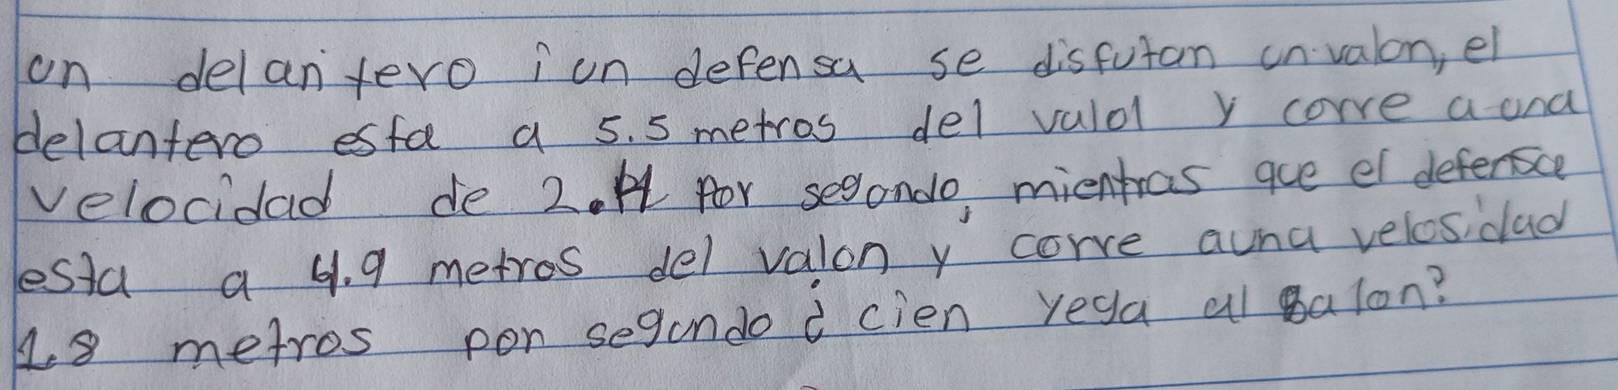 un delantero i un defensa se disfutan un valon, el
delantero esta a 5.5 metros del valol y corre a una
velocidad de 2.4 por segondo, mientras que el defensa
esta a 4.9 metros del valon y corre auna velosidad
1.8 metros por segundo ¿ cien yega al balon?